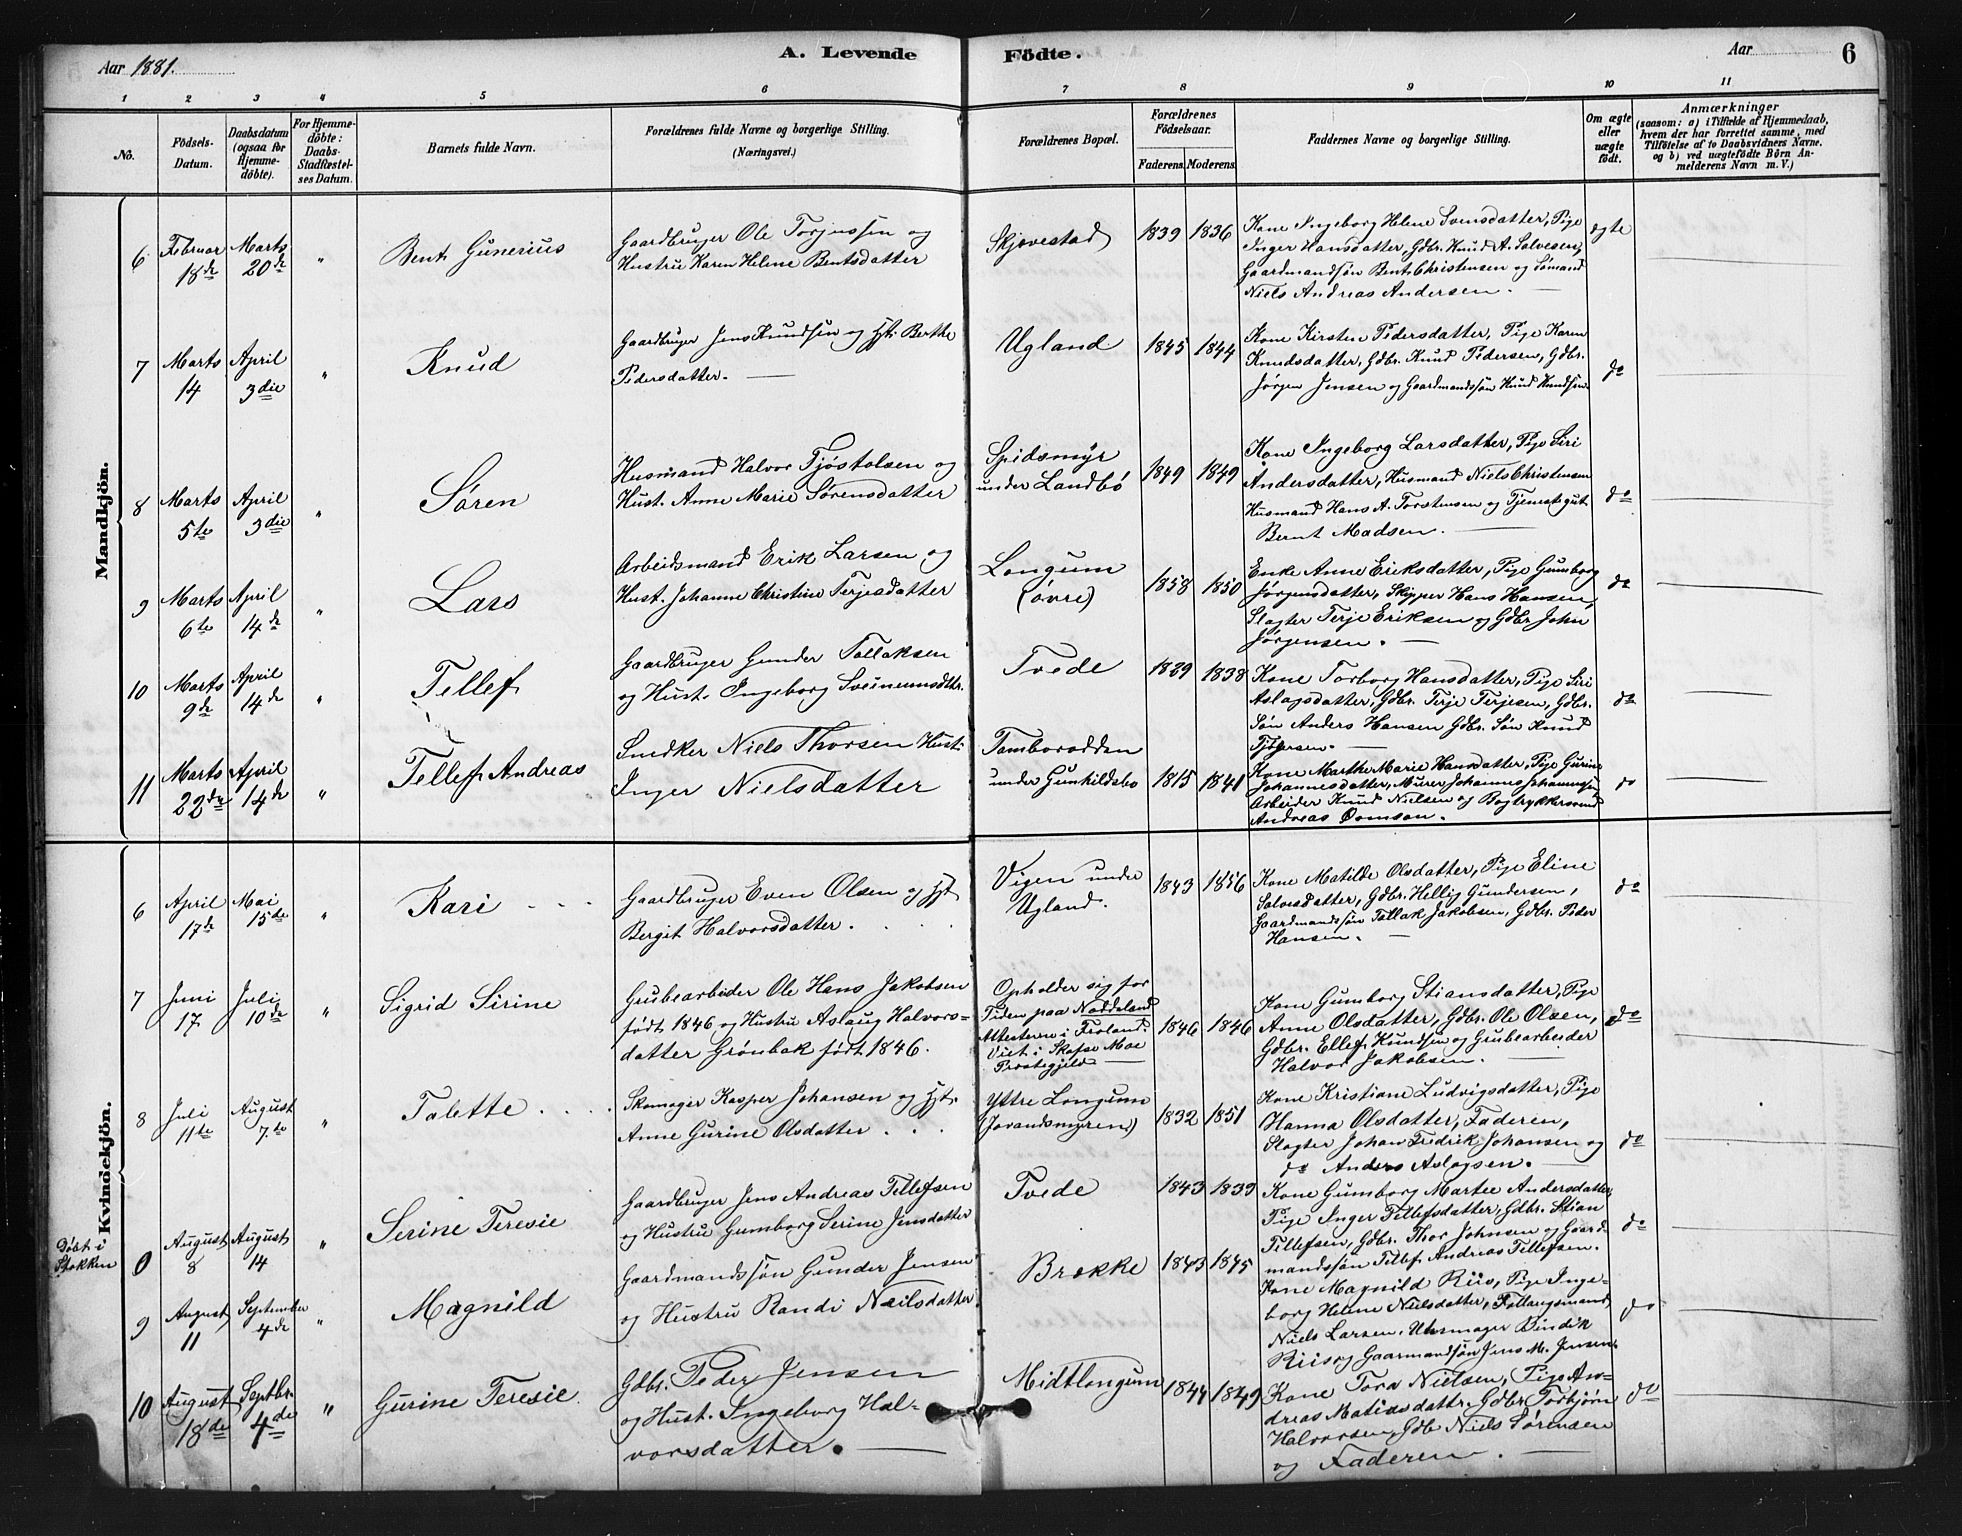 Aar 1881.
A. Levende Födte.
Aar
6
1 2 3 4 5 6 7 8 9 10 11
No.
Födsels-
Datum.
Daabsdatum
(ogsaa for
Hjemme-
döbte).
For Hjemme-
döbte:
Daabs-
Stadfæstel-
ses Datum.
Barnets fulde Navn.
Forældrenes fulde Navne og borgerlige Stilling.
(Næringsvei.)
Forældrenes Bopæl.
Forældrenes
Födselsaar.
Faderens. Moderens.
Faddernes Navne og borgerlige Stilling.
Om ægte
eller
uægte
födt.
Anmærkninger
(saasom: a) i Tilfælde af Hjemmedaab,
hvem der har forrettet samme, med
Tilföielse af to Daabsvidners Navne,
og b) ved uægtefödte Börn An-
melderens Navn m. V.)
Mandkjön.
6
Februar
18de
Marts
20de
"
Bent Gunerius
Gaardbruger Ole Torjussen og
Hustru Karen Helene Bentsdatter
Skjævestad
1839 1836
Kone Ingeborg Helene Svensdatter, Pige
Inger Hansdatter, Gdbr. Knud A. Salvesen,
Gaardmandsøn Bent Christensen og Sømand
Niels Andreas Andersen.
ægte
7
Marts
14
April
3die
"
Knud
Gaardbruger Jens Knudsen og Hst. Berthe
Pedersdatter.
Ugland
1845 1844
Kone Kirsten Pedersdatter, Pige Karen
Knudsdatter, Gdbr. Knud Pedersen, Gdbr.
Jørgen Jensen og Gaardmandssøn Knud Knudsen
do
8
Marts
5te
April
3die
"
Søren
Husmand Halvor Tjøstolsen og
Hust. Anne Marie Sørensdatter
Spidsmyr
under Landbö
1849 1849
Kone Ingeborg Larsdatter, Pige Siri
Andersdatter, Husmand Niels Christensen
Husmand Hans A. Torstensen og Tjenestegut
Bernt Madsen.
do
9
Marts
6te
April
14de
"
Lars
Arbeidsmand Erik Larsen og
Hust. Johanne Christine Terjesdatter
Longum
(øvre)
1858 1850
Enke Anne Eriksdatter, Pige Gumborg
Jørgensdatter, Skipper Hans Hansen,
Slagter Terje Eriksen og Gdbr John
Jørgensen.
do
10
Marts
9de
April
14de
"
Tellef
Gaardbruger Gunder Tallaksen
og Hust. Ingeborg Sveinumsdtr.
Tvede
1829 1838
Kone Torborg Hansdatter, Pige Siri
Aslagsdatter, Gdbr. Terje Terjesen, Gdbr.
Søn Anders Hansen Gdbr. Søn Knud
do
11
Marts
22de
April
14de
"
Tellef Andreas
Snedker Niels Thorsen Hust.
Inger Nielsdatter
Tamborodden
under Gunhildsbo
1815 1841
Kone Marthe Marie Hansdatter, Pige Gurine
Johannesdatter, Murer Johannes Johannesen,
Arbeider Knud Nielsen og Bogtrykkersvend
Andreas
do
Kvindekjön.
6
April
17de
Mai
15te
"
Kari
Gaardbruger Even Olsen og Hst
Bergit Halvorsdatter.
Vigen under
Ugland.
1843 1856
Kone Matilde Olsdatter, Pige Eline
Salvesdatter, Gdbr. Hellig Gundersen,
Gaardmandssøn Tallak Jakobsen, Gdbr. Peder
Hansen.
do
7
Juni
17
Juli
10de
"
Sigrid Sirine
Grubearbeider Ole Hans Jakobsen
født 1846 og Hustru Aslaug Halvors-
datter Grønbak født 1846.
Opholder sig for
Tiden paa Naddeland
Attesterne i Froland.
Viet i
Præstegjeld
1846 1846
Kone Gumborg Stiansdatter, Pige
Anne Olsdatter, Gdbr. Ole Olsen,
Gdbr. Ellef Knudsen og Grubearbeider
Halvor Jakobsen.
do
8
Juli
11te
August
7te
"
Talette
Skomager Kasper Johansen og Hst.
Anne Gurine Olsdatter
Yttre Longum
(Jorandsmyren)
1832 1851
Kone Kristiane Ludvigsdatter, Pige
Hanna Olsdatter, Faderen,
Slagter Johan Fredrik Johansen og
do Anders Aslagsen.
do
Døbt i
Stokken
0
August
8
August
14
"
Serine Teresie
Gaardbruger Jens Andreas Tellefsen
og Hustru Gumborg Serine Jensdatter
Tvede
1843 1833
Kone Gumborg Martee Andersdatter,
Pige Inger Tellefsdatter, Gdbr. Stian
Tellefsen, Gdbr. Thor Johnsen og Gaard-
mandssøn Tellef Andreas Tellefsen.
do
9
August
11
September
4de
"
Magnild
Gaardmandssøn Gunder Jensen
og Hustru Randi Neilsdatter
Brække
1843 1845
Kone Magnild Riis, Pige Inge-
borg Helene Nielsdatter, Follaugsmand
Niels Larsen, Uhrmager Bendik
Riis og Gaarmandsøn Jens M. Jensen.
do
10
August
18de
Septbr.
4de
"
Gurine Teresie
Gdbr. Peder Jensen
og Hust. Ingeborg Hal-
vorsdatter.
Midtlongum
1844 1849
Kone Tora Nielsen, Pige An-
dreas Matiasdattr. Gdbr. Torbjørn
Halvorsen, Gdb Niels Sørensen
og Faderen.
do